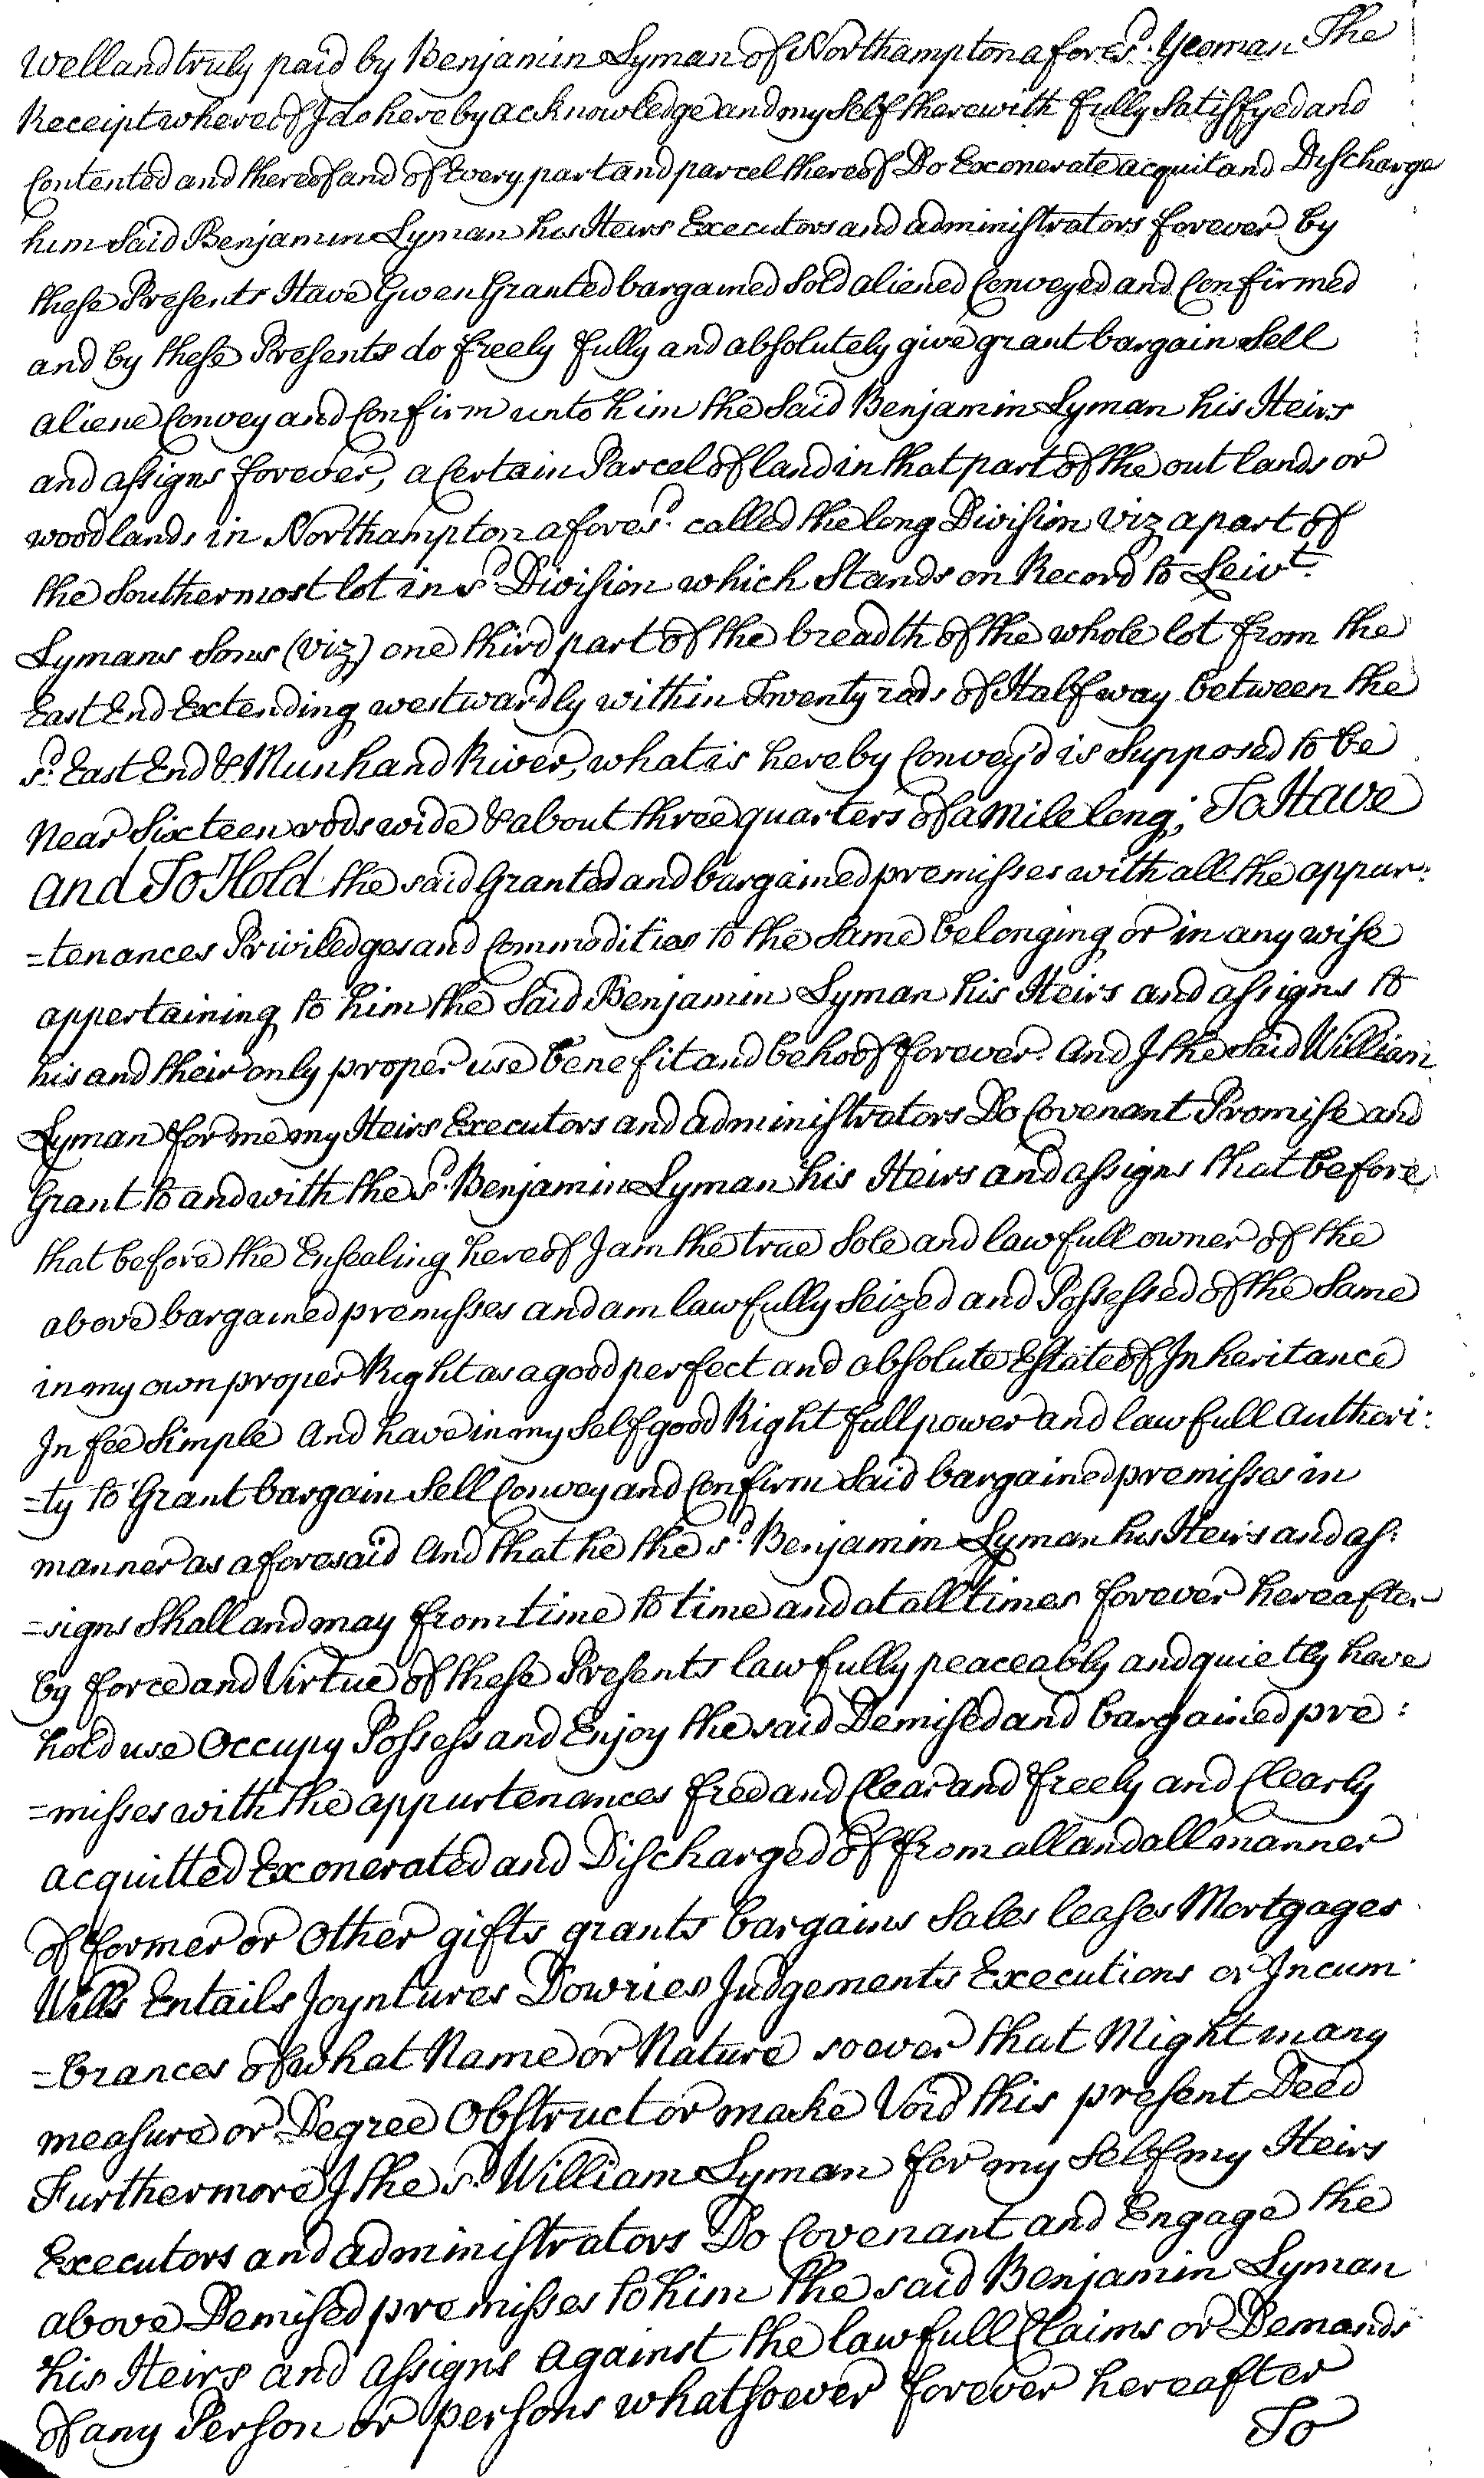 Well and truly paid by Benjamin Lyman of Northampton afores.d Yeoman The
Receipt whereof I do hereby acknowledge and my Self therewith fully Satisfyed and
Contented and thereof and of Every part and parcel thereof Do Exonerate acquit and Discharge
him Said Benjamin Lyman his Heirs Executors and administrators forever by
these Presents Have Given Granted bargained Sold aliened Conveyed and Confirmed
and by these Presents do freely fully and absolutely give grant bargain Sell
aliene Convey and Confirm unto him the Said Benjamin Lyman his Heirs
and assigns forever, a Certain Parcel of land in that part of the out lands or
woodlands in Northampton afores.d called the long Division Viz a part of
the Southermost lot in s.d Division which Stands on Record to Leiv.t
Lymans Sons (Viz) one third part of the breadth of the whole lot from the
East End Extending westwardly within Twenty rods of Half way between the
s.d East End & Munhand River, what is hereby Convey'd is Supposed to be
Near Sixteen rods wide & about three quarters of a Mile long; To Have
and To Hold the said Granted and bargained premisses with all the appur:
=tenances Priviledges and Commodities to the Same belonging or in any wise
appertaining to him the Said Benjamin Lyman his Heirs and assigns to
his and their only proper use benefit and behoof forever. And I the Said William
Lyman for me my Heirs Executors and administrators Do Covenant Promise and
Grant to and with the s.d Benjamin Lyman his Heirs and assigns that before
that before the Ensealing hereof I am the true Sole and lawfull owner of the
above bargained premisses and am lawfully Seized and Possessed of the Same
in my own proper Right as a good perfect and absolute Estate of Inheritance
In fee Simple And have in my Self good Right full power and lawfull Authori:
=ty to Grant bargain Sell Convey and Confirm Said bargained premisses in
manner as aforesaid And that he the s.d Benjamin Lyman his Heirs and as:
=signs Shall and may from time to time and at all times forever hereafter
by force and Virtue of these Presents lawfully peaceably and quietly have
hold use Occupy Possess and Enjoy the said Demised and bargained pre:
=misses with the appurtenances free and Clear and freely and Clearly
acquitted Exonerated and Discharged of from all and all manner
of former or Other gifts grants bargains Sales leases Mortgages
Wills Entails Joyntures Dowries Judgements Executions or Incum
=brances of what Name or Nature soever that Might in any
measure or Degree Obstruct or make Void this present Deed
Furthermore I the s.d William Lyman for my Self my Heirs
Executors and administrators Do Covenant and Engage the
above Demised premisses to him the said Benjamin Lyman
his Heirs and Assigns Against the lawfull Claims or Demands
of any Person or persons whatsoever forever hereafter
To